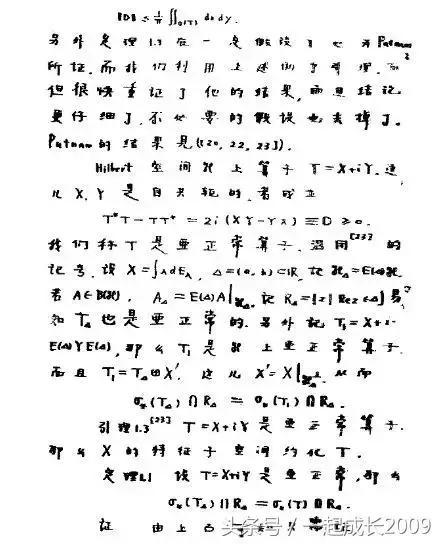 ‖D‖ ≤ 1/π ∬σ(T) dxdy.
另外定理1.3在一定假设下已为Putnam
所证,而我们利用上述的了事理,不
但很快重证了他的结果,而且结论
更仔细了,不必要的假设也去掉了.
Putnam的结果见([20, 22, 23]).
Hilbert 空间ℋ上算子 T=X+iY,这
儿 X, Y 是自共轭的,若成立
T*T-TT* = 2i(XY-YX) ≡ D ≥ 0.
我们称T是亚正常算子.沿用[23]的
记号,设 X=∫λdE_λ, Δ=(a, b)⊂ℝ, 记 ℋ_Δ=E(Δ)ℋ
若 A∈B(ℋ), A_Δ = E(Δ)A|ℋ_Δ. 记 R_Δ={z| Re z∈Δ} 易
知 T_Δ 也是亚正常的.另外记 T₁=X+i·
E(Δ)YE(Δ), 那么 T₁是ℋ上亚正常算子
而且 T₁=T_Δ⊕X′, 这儿 X′=X| 从而
(T_Δ)∩R_Δ = (T₁)∩R_Δ.
引理1.3[23] T=X+iY是亚正常算子.
那么 X 的特征子空间约化 T.
定理1.1 设T=X+iY是亚正常,那么
(T_Δ)∩R_Δ = (T)∩R_Δ.
证 由上
头条号 / 一起成长2009